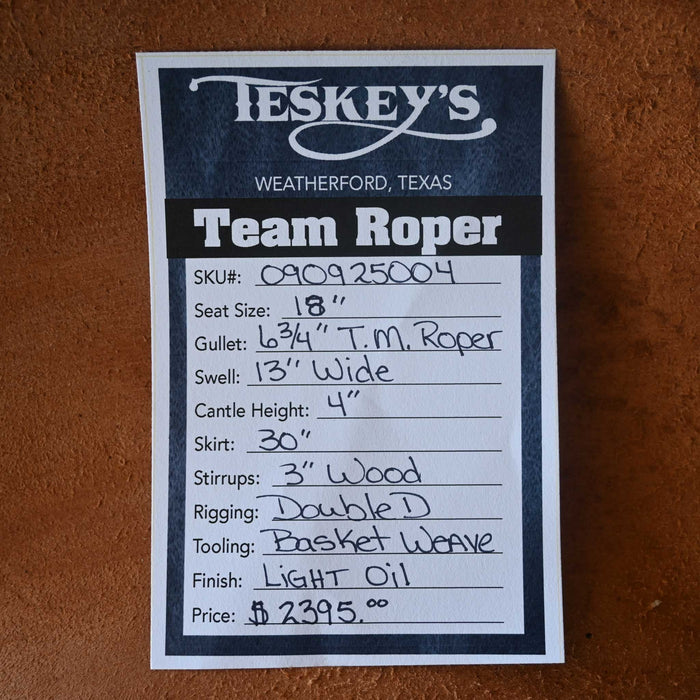 TESKEY'S
WEATHERFORD, TEXAS
Team Roper
SKU#: 090925004
Seat Size: 18"
Gullet: 6 3/4" T.M. Roper
Swell: 13" Wide
Cantle Height: 4"
Skirt: 30"
Stirrups: 3" Wood
Rigging: Double D
Tooling: Basket Weave
Finish: Light Oil
Price: $ 2395.00